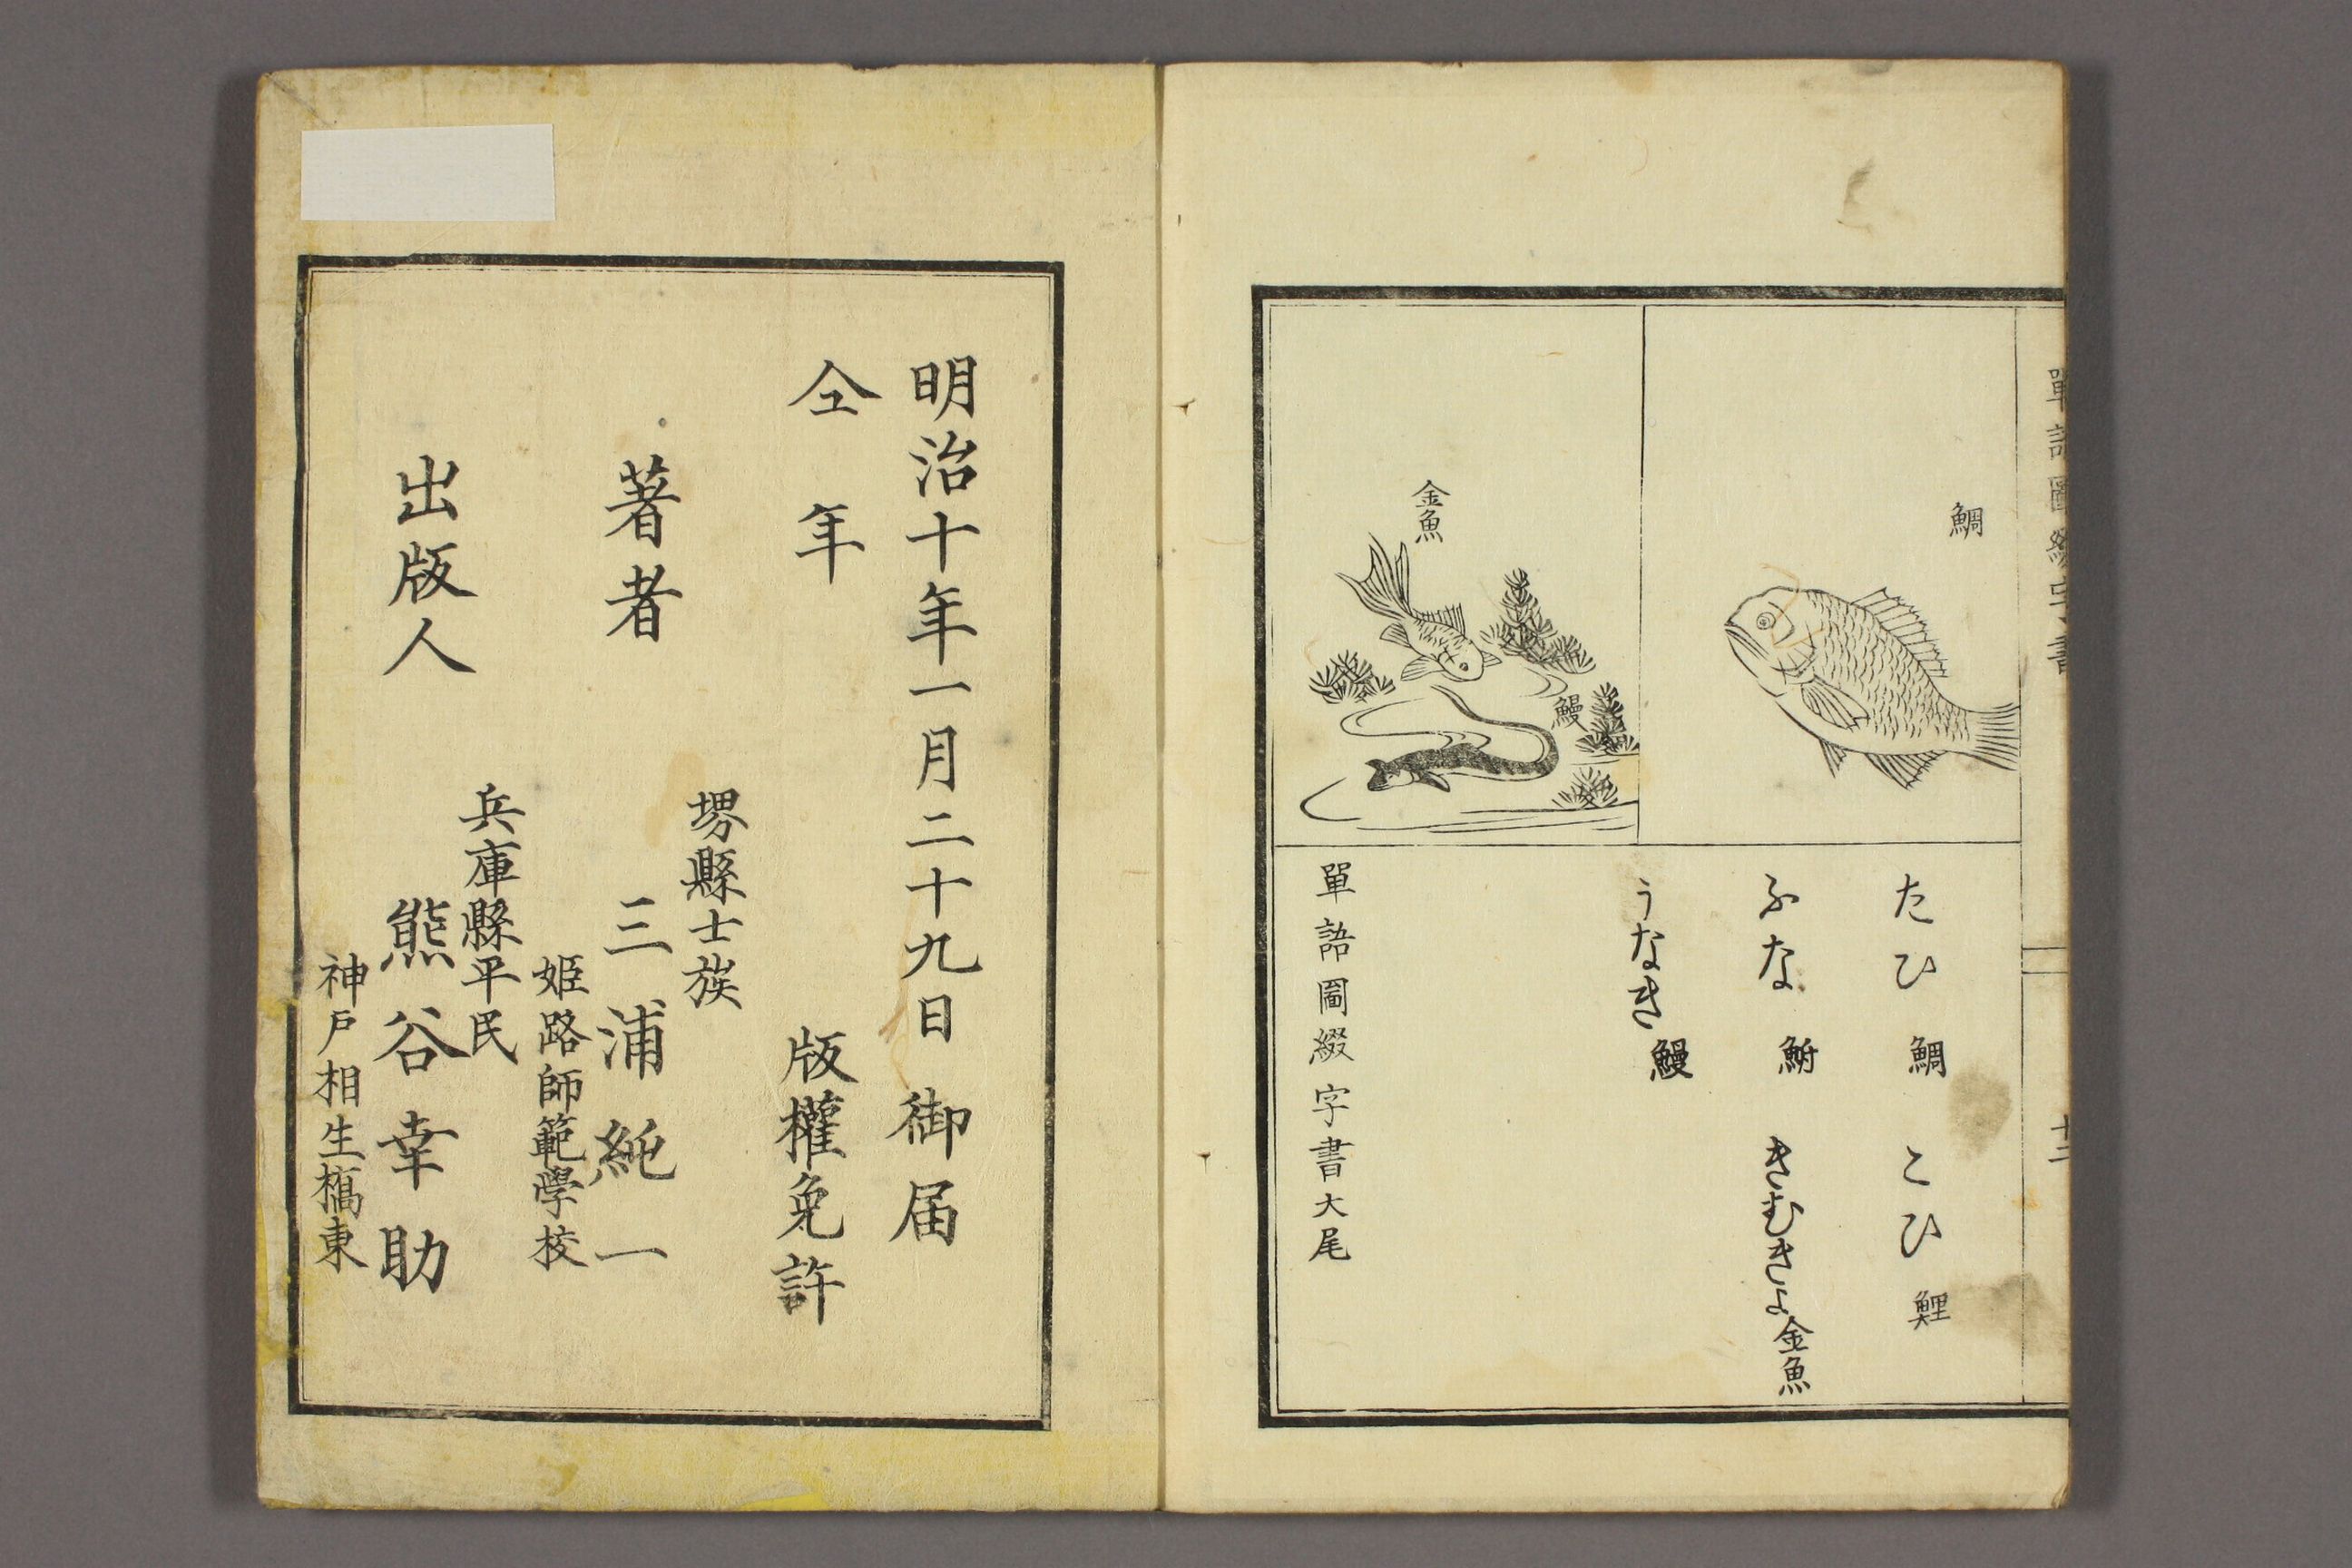 單語圖綴字書
十二
鯛
金魚
鰻
たひ 鯛 こひ 鯉
ふな 鮒 きむきよ 金魚
うなき 鰻
單語圖綴字書大尾
明治十年一月二十九日 御届
仝年 版權免許
堺縣士族
著者 三浦純一
姫路師範學校
兵庫縣平民
出版人 熊谷幸助
神戸相生橋東